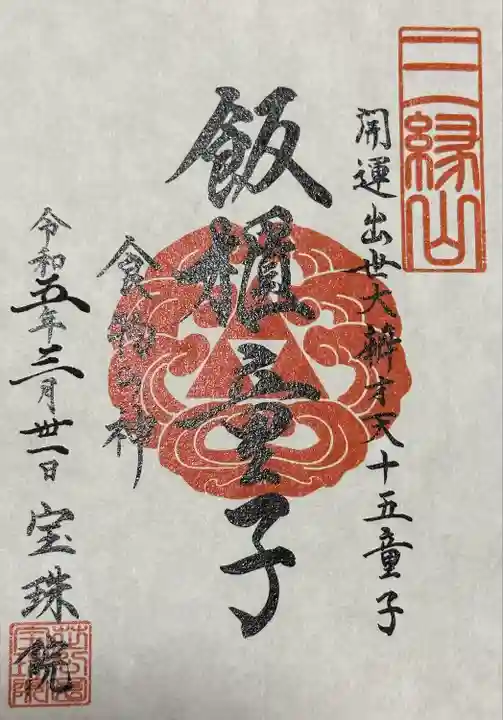 三縁山
開運出世大辨才天十五童子
飯櫃童子
食物の神
令和五年三月卅一日 宝珠院